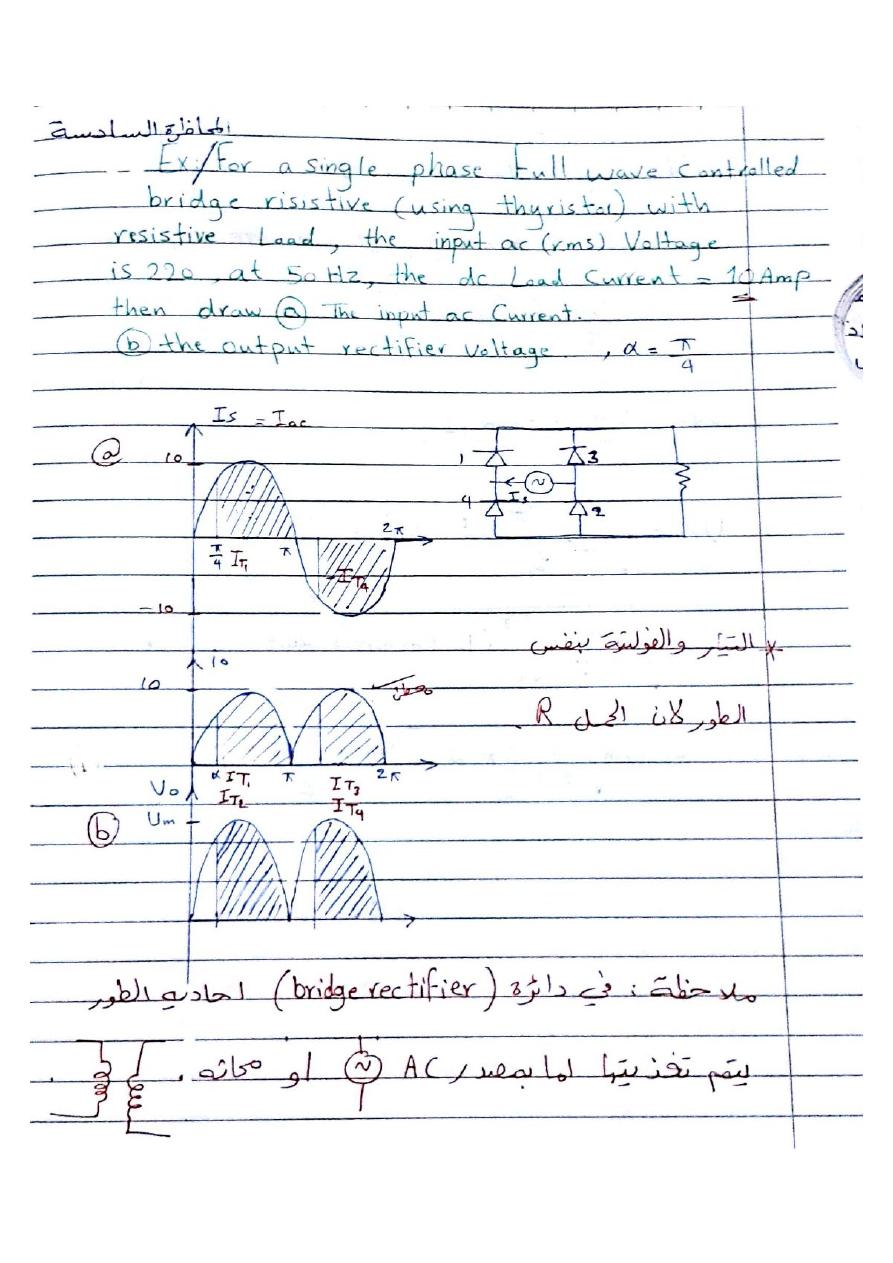 المحاظرة السادسة
Ex/For a single phase full wave Controlled
bridge risistive (using thyristor) with
resistive Load, the input ac (rms) Voltage
is 220, at 50 Hz, the dc Load Current = 10 Amp
then draw ⓐ The input ac Current.
ⓑ the output rectifier voltage , α = π/4
Is = Iac
ⓐ
10
π/4
IT1
π
2π
IT4
-10
1
3
4
Is
2
* التيار والفولتية بنفس
الطور لان الحمل R
10
10
α IT1
IT2
π
IT3
IT4
2π
Vo
ⓑ
Um
ملاحظة : في دائرة (bridge rectifier) احادية الطور
يتم تغذيتها اما بمصدر AC او محاثه .